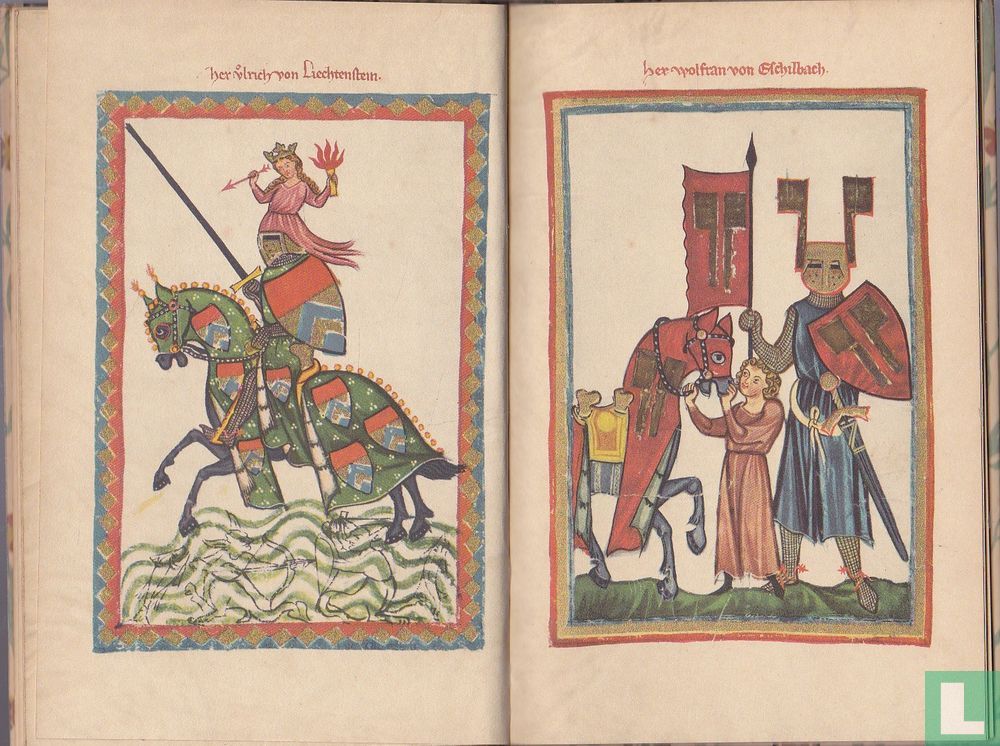 her vͦlrich von Liechtenstein.
her wolfran von Eschilbach.
L